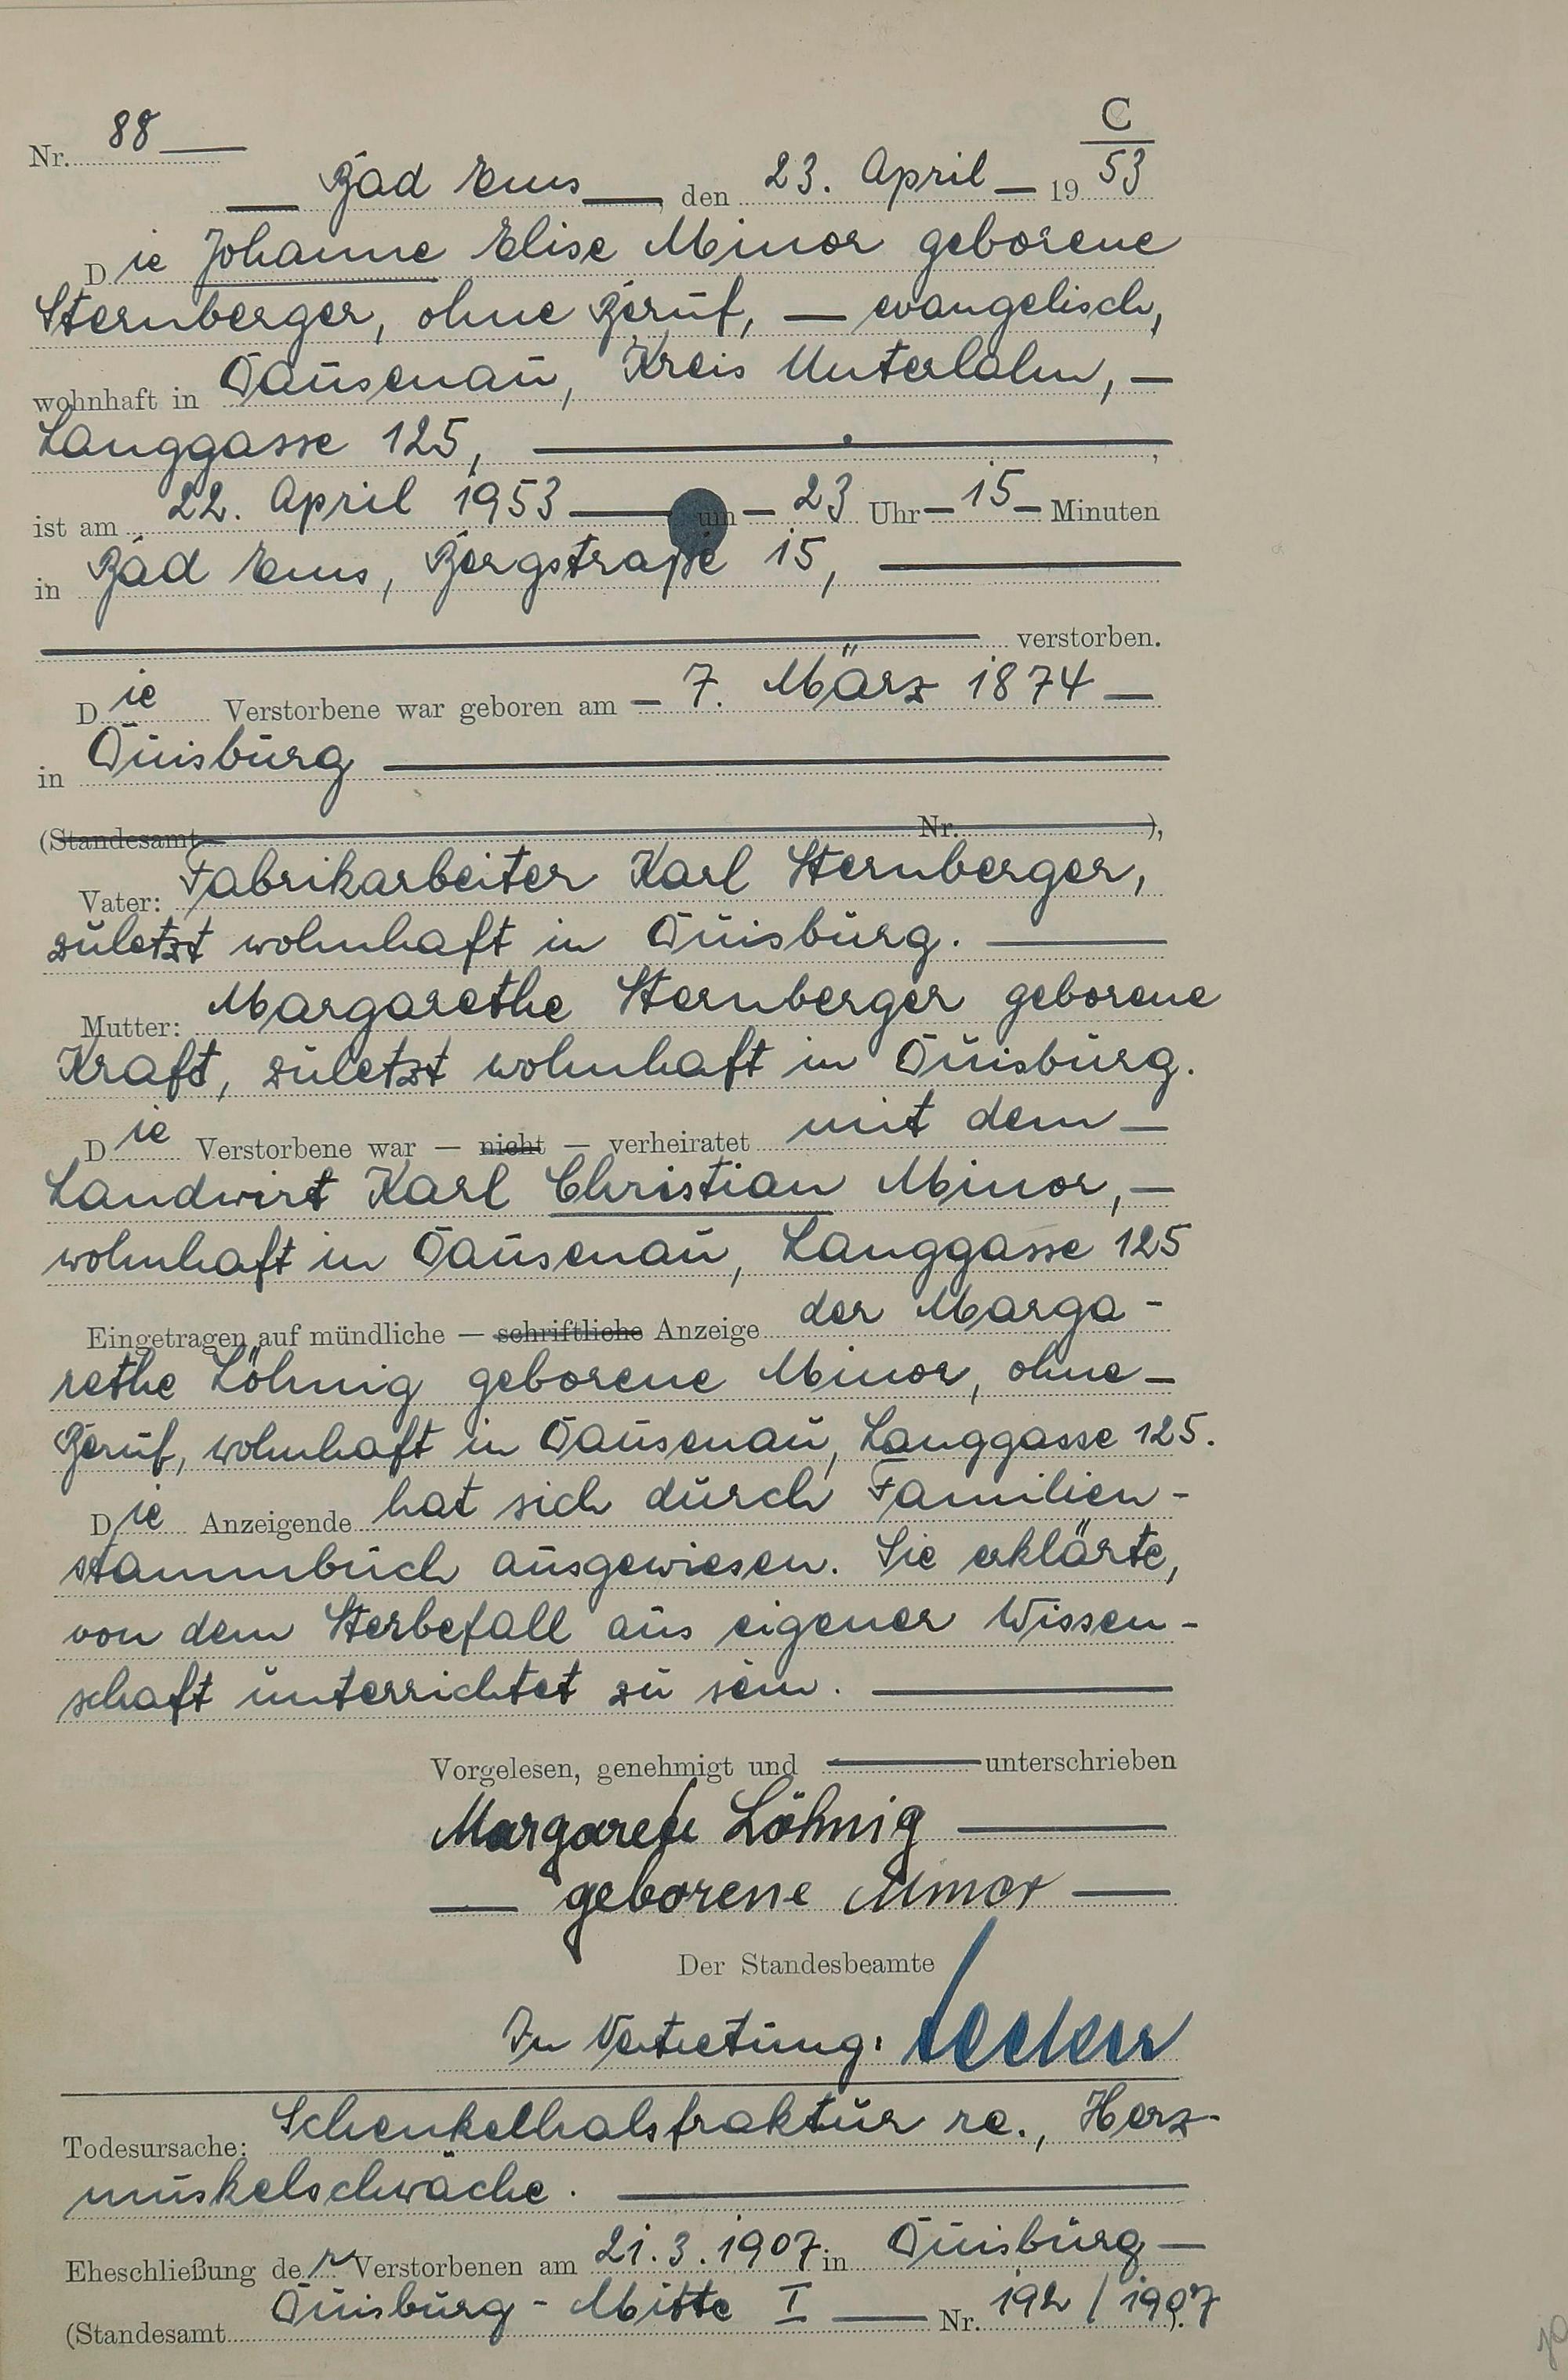 C
Nr. 88
Bad Ems, den 23. April 19 53
Die Johanne Elise Minor geborene
Sternberger, ohne Beruf, — evangelisch,
wohnhaft in Dausenau, Kreis Unterlahn, —
Langgasse 125,
ist am 22. April 1953 — um — 23 Uhr — 15 — Minuten
in Bad Ems, Bergstraße 15,
verstorben.
Die Verstorbene war geboren am — 7. März 1874 —
in Duisburg
(Standesamt Nr. ),
Vater: Fabrikarbeiter Karl Sternberger,
zuletzt wohnhaft in Duisburg.
Mutter: Margarethe Sternberger geborene
Kraft, zuletzt wohnhaft in Duisburg.
Die Verstorbene war — nicht — verheiratet mit dem —
Landwirt Karl Christian Minor, —
wohnhaft in Dausenau, Langgasse 125
Eingetragen auf mündliche — schriftliche Anzeige der Marga-
rethe Löhnig geborene Minor, ohne —
Beruf, wohnhaft in Dausenau, Langgasse 125.
Die Anzeigende hat sich durch Familien-
stammbuch ausgewiesen. Sie erklärte,
von dem Sterbefall aus eigener Wissen-
schaft unterrichtet zu sein.
Vorgelesen, genehmigt und — unterschrieben
Margarete Löhnig
geborene Minor
Der Standesbeamte
In Vertretung:
Todesursache: Schenkelhalsfraktur re., Herz-
muskelschwäche.
Eheschließung der Verstorbenen am 21.3.1907 in Duisburg —
(Standesamt Duisburg - Mitte I — Nr. 192/1907).